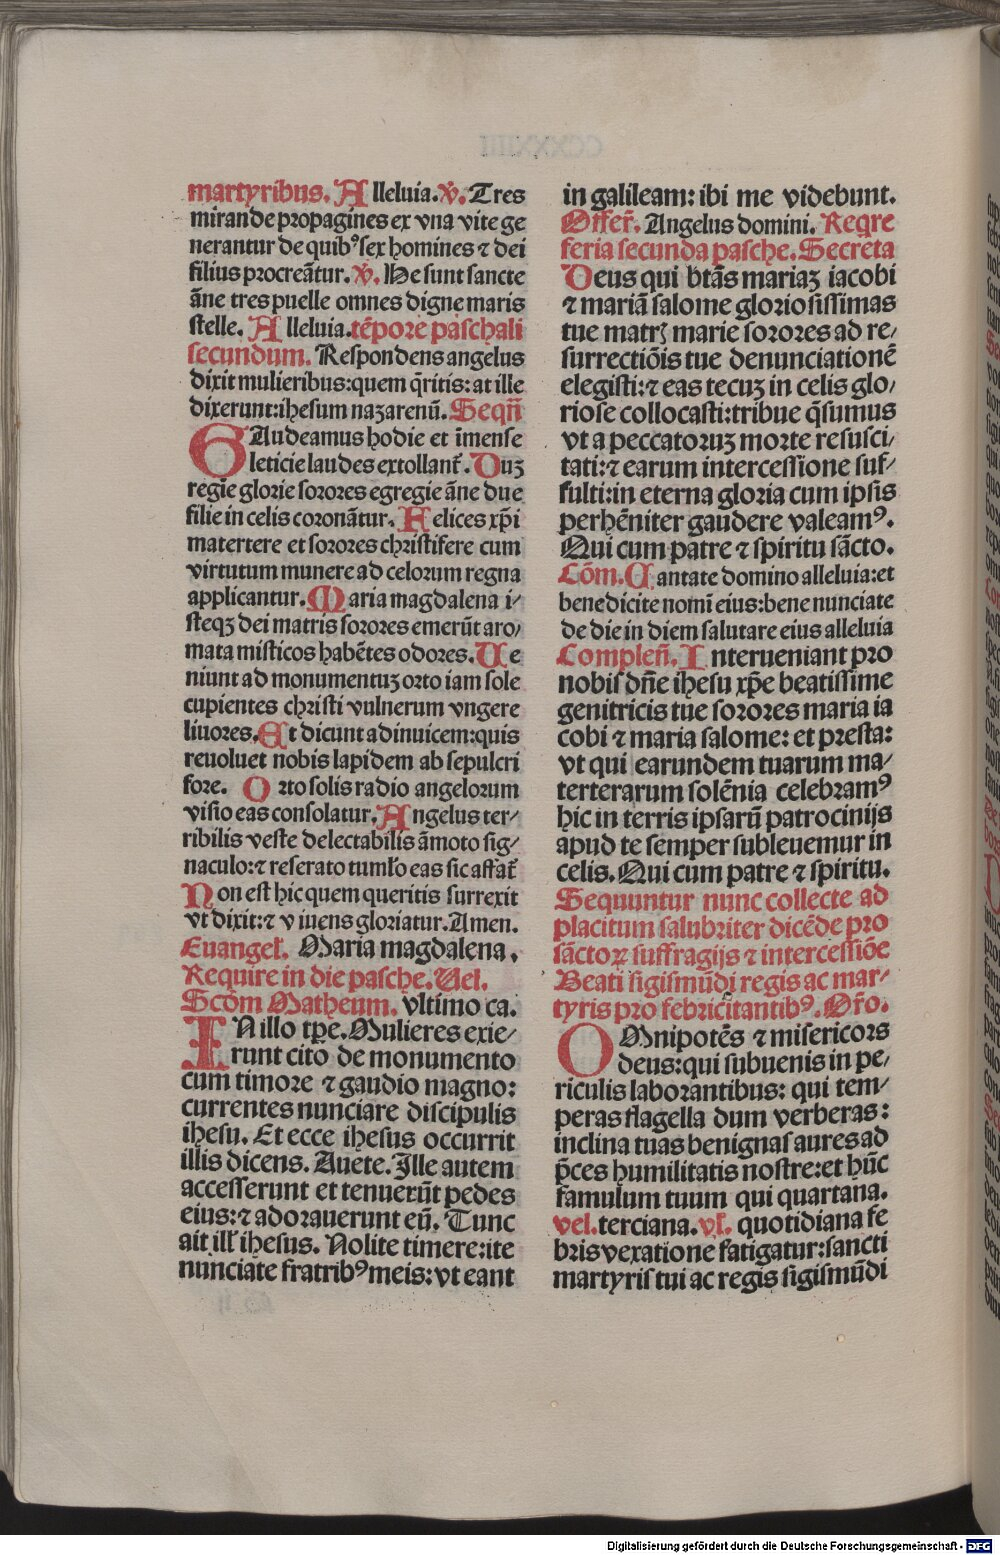 martyribus. Alleluia. ℣. Tres
mirande propagines ex vna vite ge
nerantur de quibꝰ sex homines ⁊ dei
filius procreātur. ℣. He sunt sancte
āne tres puelle omnes digne maris
stelle. Alleluia. tēpore paschali
secundum. Respondens angelus
dixit mulieribus: quem q̄ritis: at ille
dixerunt: ihesum nazarenū. Seqn̄
GAudeamus hodie et īmense
leticie laudes extollant̄. Duꝫ
regie glorie sorores egregie āne due
filie in celis coronātur. Felices xp̄i
matertere et sorores christifere cum
virtutum munere ad celorum regna
applicantur. Maria magdalena i⸗
steqꝫ dei matris sorores emerūt aro⸗
mata misticos habētes odores. Ue
niunt ad monumentuꝫ orto iam sole
cupientes christi vulnerum vngere
liuores. Et dicunt adinuicem: quis
reuoluet nobis lapidem ab sepulcri
fore. Orto solis radio angelorum
visio eas consolatur. Angelus ter⸗
ribilis veste delectabilis āmoto sig⸗
naculo: ⁊ reserato tuml̄o eas sic affat̄
Non est hic quem queritis surrexit
vt dixit: ⁊ viuens gloriatur. Amen.
Euangel̄. Maria magdalena.
Require in die pasche. Uel.
Scd̄m Matheum. vltimo ca.
IN illo tp̄e. Mulieres exie⸗
runt cito de monumento
cum timore ⁊ gaudio magno:
currentes nunciare discipulis
ihesu. Et ecce ihesus occurrit
illis dicens. Auete. Ille autem
accesserunt et tenuerūt pedes
eius: ⁊ adorauerunt eū. Tunc
ait ill̄ ihesus. Nolite timere: ite
nunciate fratribꝰ meis: vt eant
in galileam: ibi me videbunt.
Offer̄. Angelus domini. Reqre
feria secunda pasche. Secreta
Deus qui btās mariaꝫ iacobi
⁊ mariā salome gloriosissimas
tue matrꝭ marie sorores ad re⸗
surrectiōis tue denunciationē
elegisti: ⁊ eas tecuꝫ in celis glo⸗
riose collocasti: tribue q̄sumus
vt a peccatoruꝫ morte resusci⸗
tati: ⁊ earum intercessione suf⸗
fulti: in eterna gloria cum ipsis
perhēniter gaudere valeamꝰ.
Qui cum patre ⁊ spiritu sācto.
Cōm. Cantate domino alleluia: et
benedicite nomī eius: bene nunciate
de die in diem salutare eius alleluia
Complen̄. Interueniant pro
nobis dn̄e ihesu xp̄e beatissime
genitricis tue sorores maria ia
cobi ⁊ maria salome: et presta:
vt qui earundem tuarum ma⸗
terterarum solēnia celebramꝰ
hic in terris ipsarū patrocinijs
apud te semper subleuemur in
celis. Qui cum patre ⁊ spiritu.
Sequuntur nunc collecte ad
placitum salubriter dicēde pro
sāctoꝝ suffragijs ⁊ intercessiōe
Beati sigismūdi regis ac mar⸗
tyris pro febricitantibꝰ. Or̄o.
OMnipotēs ⁊ misericors
deus: qui subuenis in pe⸗
riculis laborantibus: qui tem⸗
peras flagella dum verberas:
inclina tuas benignas aures ad
p̄ces humilitatis nostre: et hūc
famulum tuum qui quartana.
vel. terciana. vl̄. quotidiana fe
bris vexatione fatigatur: sancti
martyris tui ac regis sigismūdi
Digitalisierung gefördert durch die Deutsche Forschungsgemeinschaft - DFG